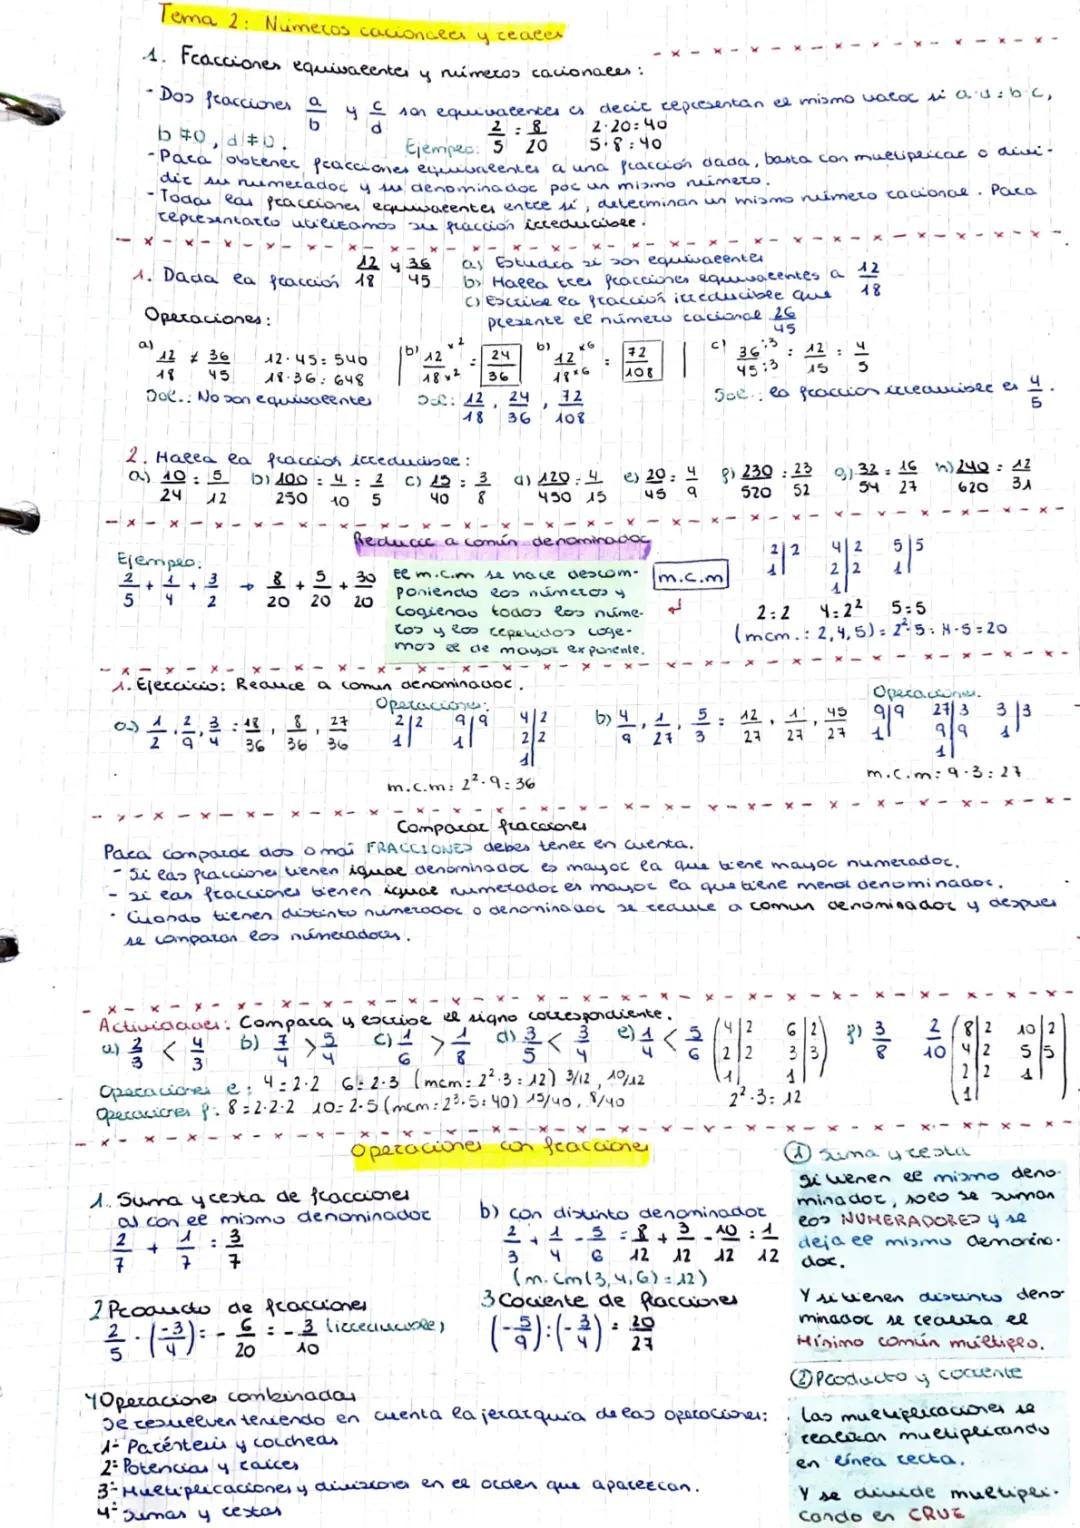 Tema 2: Números racionales y reales
1. Fracciones equivalentes y números racionales:
- Dos fracciones a/b y c/d son equivalentes es decir representan el mismo valor si a·d = b·c,
b ≠ 0, d ≠ 0. Ejemplo: 2/5 = 8/20 2·20 = 40 5·8 = 40
- Para obtener fracciones equivalentes a una fracción dada, basta con multiplicar o divi-
dir su numerador y su denominador por un mismo número.
- Todas las fracciones equivalentes entre sí, determinan un mismo número racional. Para
representarlo utilizamos su fracción irreducible.
1. Dada la fracción 12/18 y 36/45
a) Estudia si son equivalentes
b) Halla tres fracciones equivalentes a 12/18
c) escribe la fracción irreducible que
presente el número racional 26/45
Operaciones:
a) 12/18 ≠ 36/45 12·45 = 540 18·36 = 648
Sol.: No son equivalentes
b) 12/18 ×2 ×2 = 24/36 b) 12/18 ×6 ×6 = 72/108
Sol: 12/18, 24/36, 72/108
c) 36:3/45:3 = 12/15 = 4/5
Sol.: la fracción irreducible es 4/5.
2. Halla la fracción irreducible:
a) 10/24 = 5/12 b) 100/250 = 4/10 = 2/5 c) 15/40 = 3/8 d) 120/450 = 4/15 e) 20/45 = 4/9 f) 230/520 = 23/52 g) 32/54 = 16/27 h) 240/620 = 12/31
Reducir a común denominador
Ejemplo:
2/5 + 1/4 + 3/2 → 8/20 + 5/20 + 30/20
El m.c.m se hace descom-
poniendo los números y
cogiendo todos los núme-
ros y los repetidos coge-
mos el de mayor exponente.
m.c.m
2|2 4|2 5|5
1| 2|2 1|
1|
2=2 4=2² 5=5
(mcm.: 2,4,5) = 2²·5 = 4·5 = 20
1. Ejercicio: Reduce a comun denominador.
a) 1/2, 2/9, 3/4 = 18/36, 8/36, 27/36
Operaciones:
2|2 9|9 4|2
1| 1| 2|2
1|
m.c.m: 2²·9 = 36
b) 4/9, 1/27, 5/3 = 12/27, 1/27, 45/27
Operaciones.
9|9 27|3 3|3
1| 9|9 1|
1|
m.c.m: 9·3 = 27
Comparar fracciones
Para comparar dos o mas FRACCIONES debes tener en cuenta.
- Si las fracciones tienen igual denominador es mayor la que tiene mayor numerador.
- si las fracciones tienen igual numerador es mayor la que tiene menor denominador.
· Cuando tienen distinto numerador o denominador se reduce a comun denominador y despues
se comparan los númeradores.
Actividades: Compara y escribe el signo correspondiente.
a) 2/3 < 4/3 b) 7/4 > 5/4 c) 1/6 > 1/8 d) 3/5 < 3/4 e) 1/4 < 5/6
(4|2 6|2)
(2|2 3|3)
(1| 1|)
2²·3 = 12
f) 3/8 2/10
(8|2 10|2)
(4|2 5|5)
(2|2 1|)
(1|
Operaciones e: 4=2·2 6=2·3 (mcm = 2²·3 = 12) 3/12, 10/12
Operaciones f: 8=2·2·2 10=2·5 (mcm = 2³·5 = 40) 15/40, 8/40
Operaciones con fracciones
1. Suma y resta de fracciones
a) con el mismo denominador
2/7 + 1/7 = 3/7
b) con distinto denominador
2/3 + 1/4 - 5/6 = 8/12 + 3/12 - 10/12 = 1/12
(m.cm(3,4,6) = 12)
2 Producto de fracciones
2/5 · (-3/4) = - 6/20 = - 3/10 (irreducible)
3 Cociente de fracciones
(-5/9) : (-3/4) = 20/27
4 Operaciones combinadas
Se resuelven teniendo en cuenta la jerarquía de las operaciones:
1º Paréntesis y corcheas
2º Potencias y raíces
3º Multiplicaciones y divisiones en el orden que aparezcan.
4º Sumas y restas
① Suma y resta
Si tienen el mismo deno-
minador, solo se suman
los NUMERADORES y se
deja el mismo denomina-
dor.
Y si tienen distinto deno
minador se realiza el
Mínimo común múltiplo.
② Producto y cociente
Las multiplicaciones se
realizan multiplicando
en línea recta.
Y se divide multipli-
cando en CRUZ